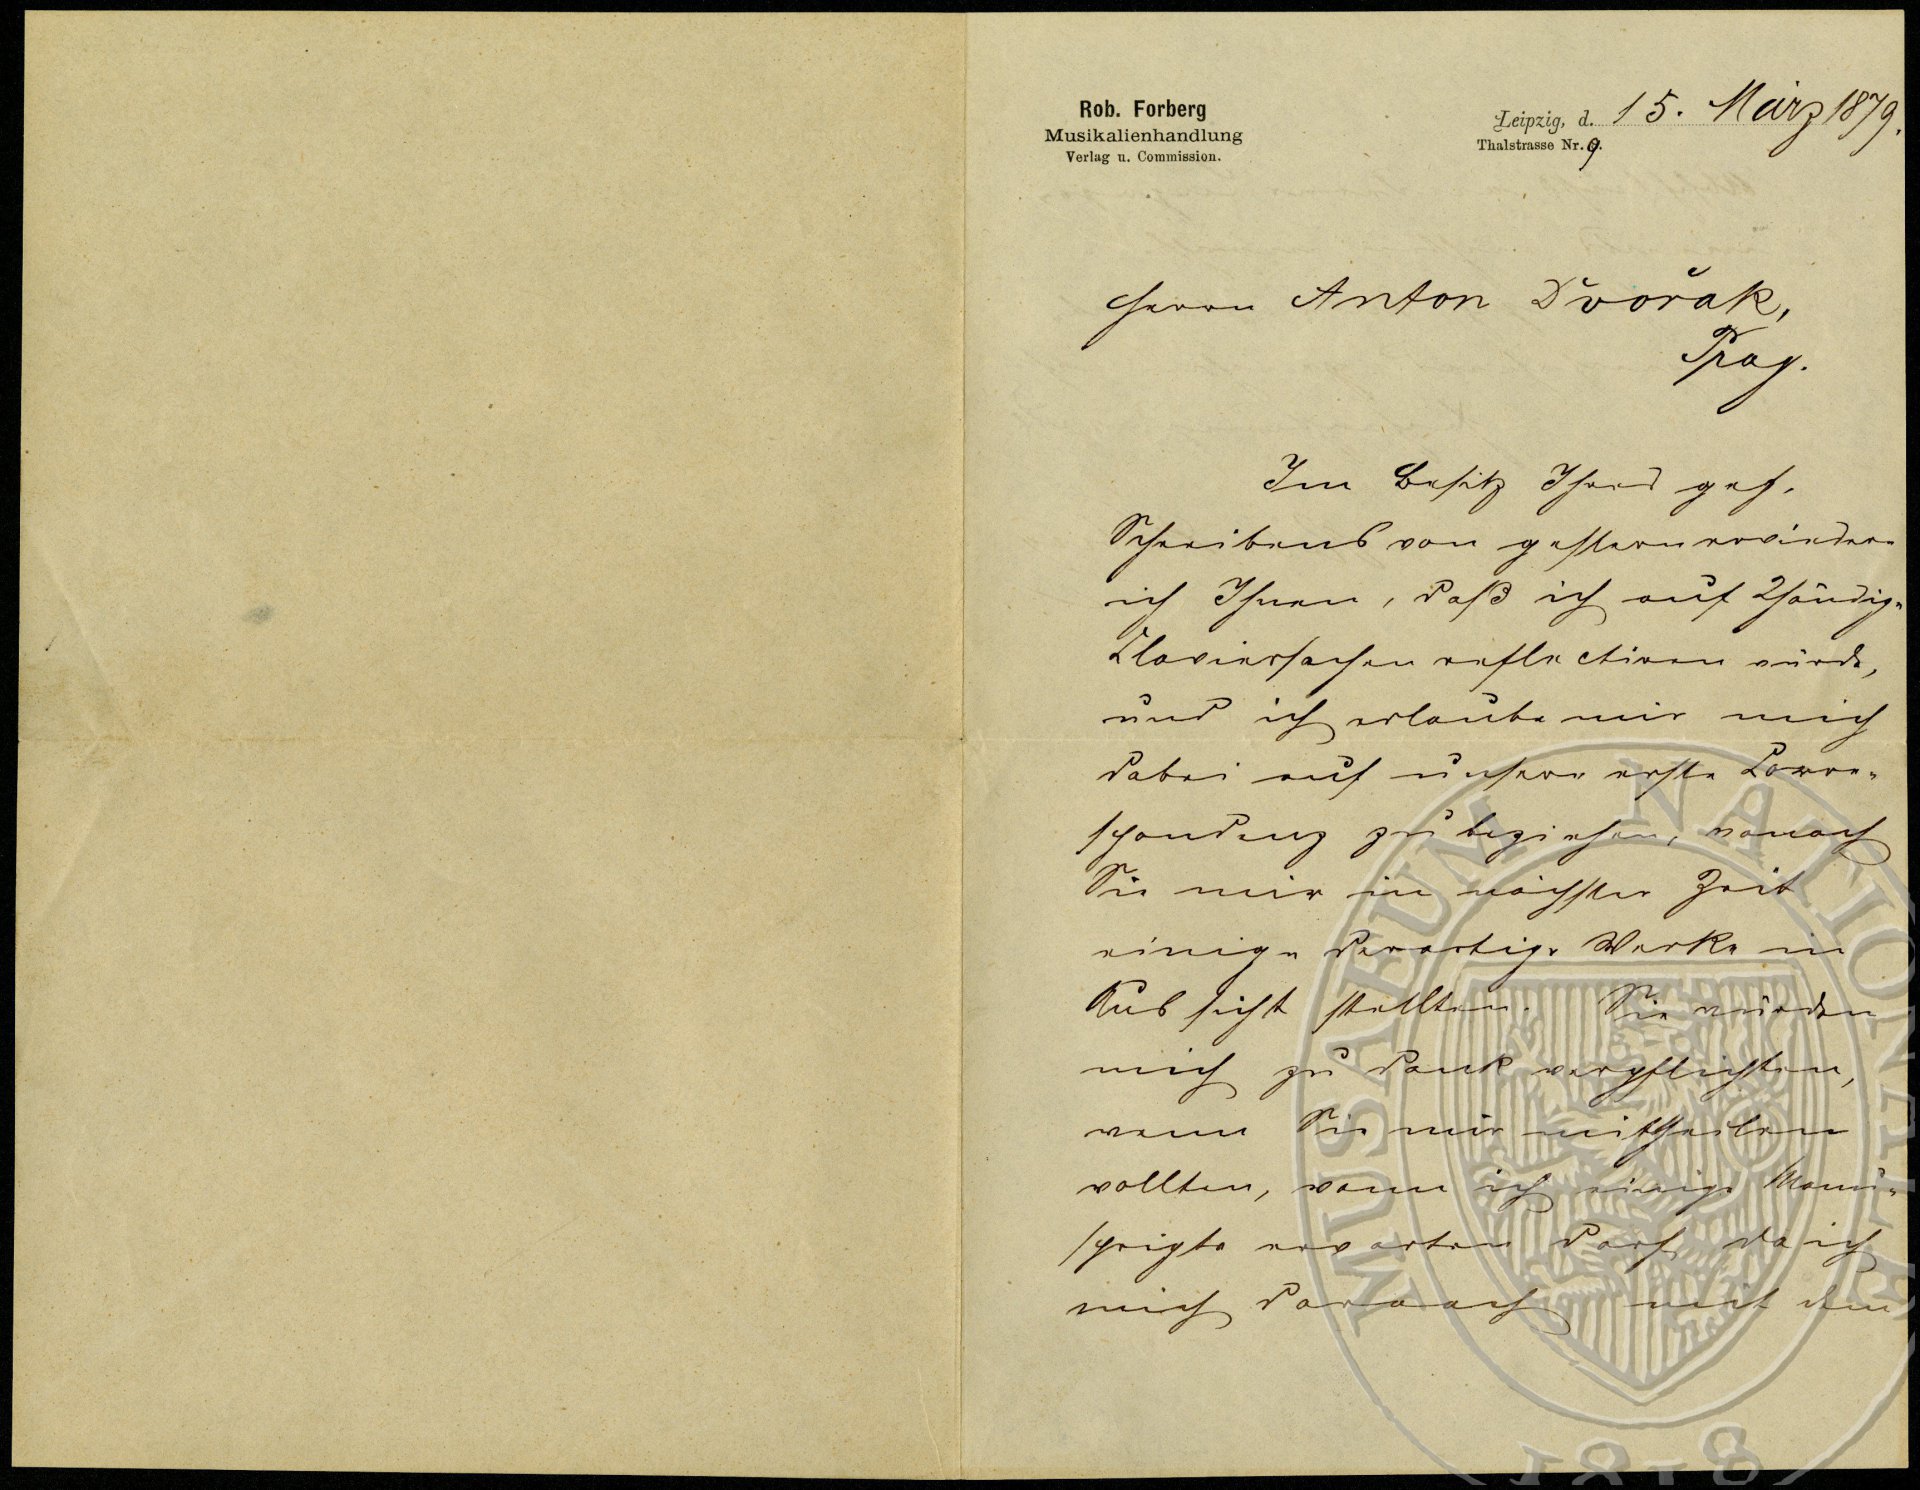 Rob. Forberg
Musikalienhandlung
Verlag u. Commission.
Leipzig, d. 15. März 1879.
Thalstrasse Nr. 9.
Herrn Anton Dvořak,
Prag.
Im Besitz Ihres gef.
Schreibens von gestern erwiedere
ich Ihnen, daß ich auf 2händige
Claviersachen reflectiren würde,
und ich erlaube mir mich
dabei auf unsere erste Corre-
spondenz zu beziehen, wonach
Sie mir in nächster Zeit
einige derartige Werke in
Aussicht stellten. Sie würden
mich zu Dank verpflichten,
wenn Sie mir mittheilen
wollten, wann ich einige Manu-
scripte erwarten darf, da ich
mich darnach mit den
MUSAEUM NATIONALE
1818